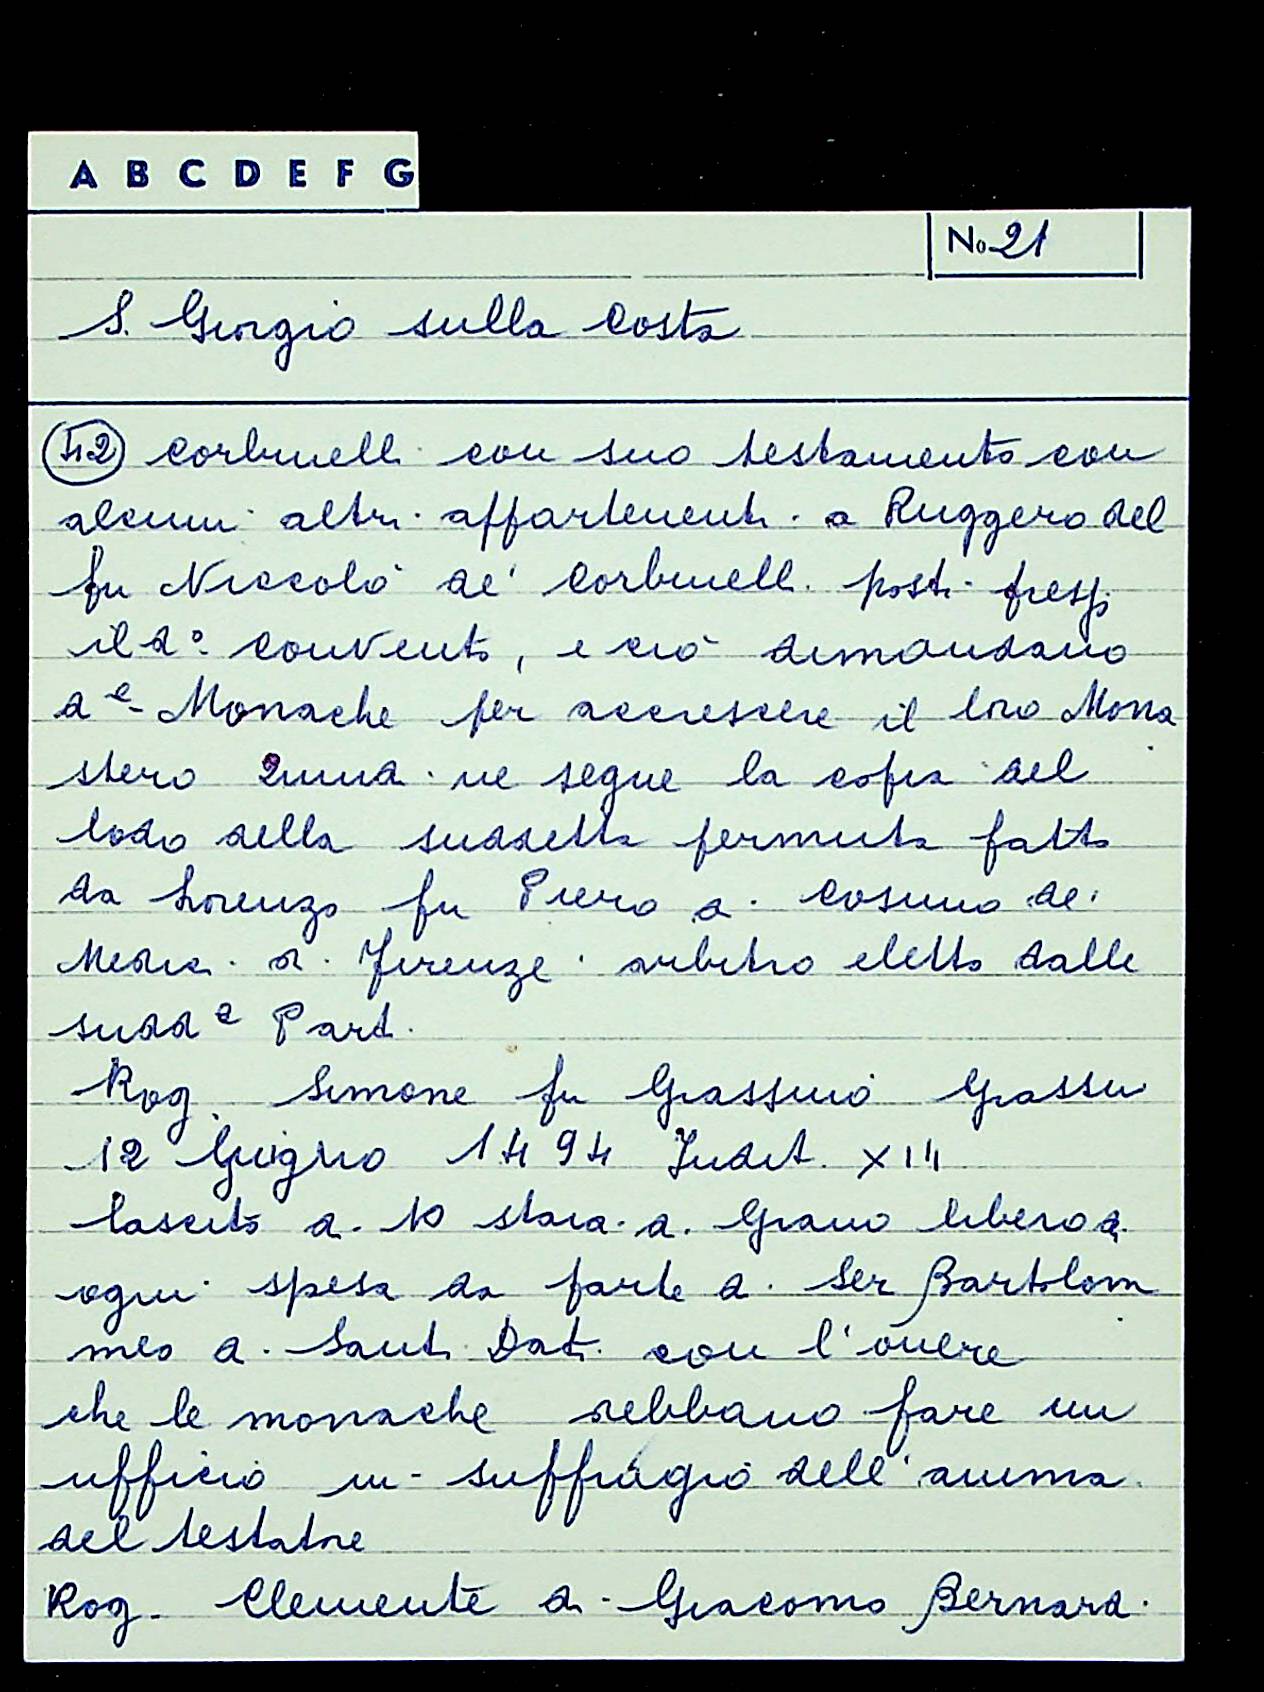 A B C D E F G
No 21
S. Giorgio sulla Costa
42 Corbinelli con suo testamento con
alcuni altri appartenenti a Ruggero del
fu Niccolò de' Corbinelli posti presso
il d° convento, e ciò dimandano
d e Monache per accrescere il loro Mona
stero Quindi ne segue la copia del
lodo della suddetta permuta fatto
da Lorenzo fu Piero di Cosimo de'
Medici di Firenze arbitro eletto dalle
sudd e Parti.
Rog. Simone fu Grassino Grassini
12 Giugno 1494 Indit. XIII
lascito di 10 staia di Grano libero da
ogni spesa da parte di Ser Bartolom
meo di Santi Dati con l'onere
che le monache debbano fare un
ufficio in suffragio dell'anima
del testatore
Rog. Clemente di Giacomo Bernardi